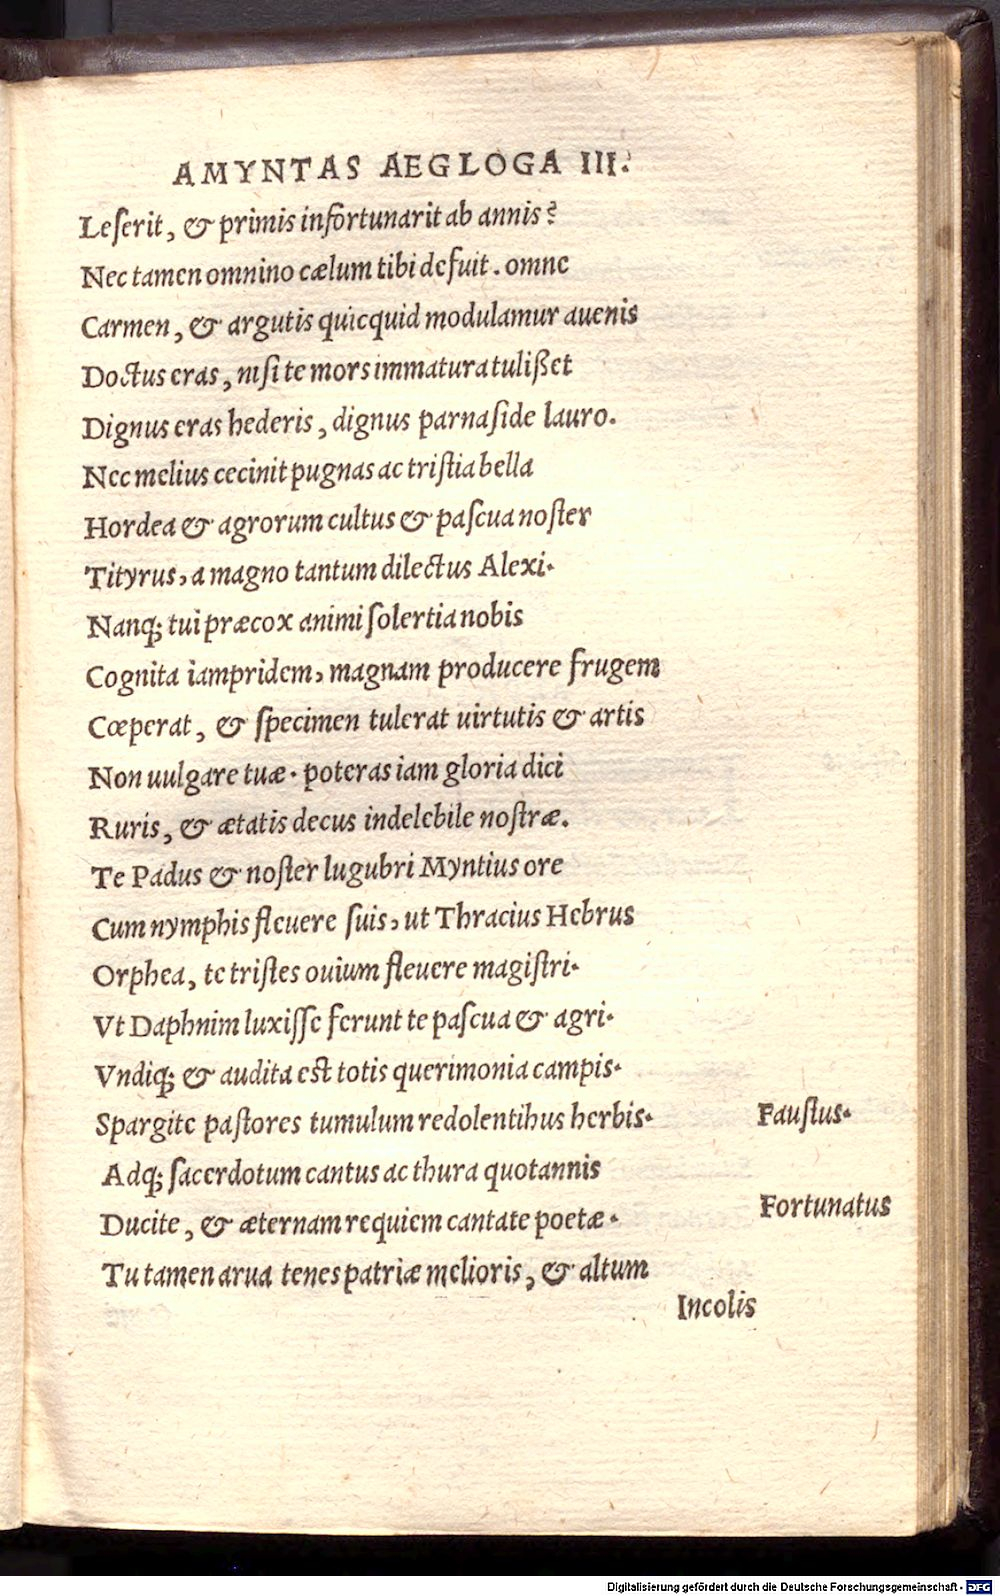 AMYNTAS AEGLOGA III.
Leſerit, & primis infortunarit ab annis?
Nec tamen omnino cælum tibi defuit. omne
Carmen, & argutis quicquid modulamur auenis
Doctus eras, niſi te mors immatura tulißet
Dignus eras hederis, dignus parnaſide lauro.
Nec melius cecinit pugnas ac triſtia bella
Hordea & agrorum cultus & paſcua noſter
Tityrus, a magno tantum dilectus Alexi.
Nanq; tui præcox animi ſolertia nobis
Cognita iampridem, magnam producere frugem
Cœperat, & ſpecimen tulerat uirtutis & artis
Non uulgare tuæ. poteras iam gloria dici
Ruris, & ætatis decus indelebile noſtræ.
Te Padus & noſter lugubri Myntius ore
Cum nymphis fleuere ſuis, ut Thracius Hebrus
Orphea, te triſtes ouium fleuere magiſtri.
Vt Daphnim luxiſſe ferunt te paſcua & agri.
Vndiq; & audita est totis querimonia campis.
Spargite paſtores tumulum redolentibus herbis. Fauſtus.
Adq; ſacerdotum cantus ac thura quotannis
Ducite, & æternam requiem cantate poetæ. Fortunatus
Tu tamen arua tenes patriæ melioris, & altum
Incolis
Digitalisierung gefördert durch die Deutsche Forschungsgemeinschaft - DFG